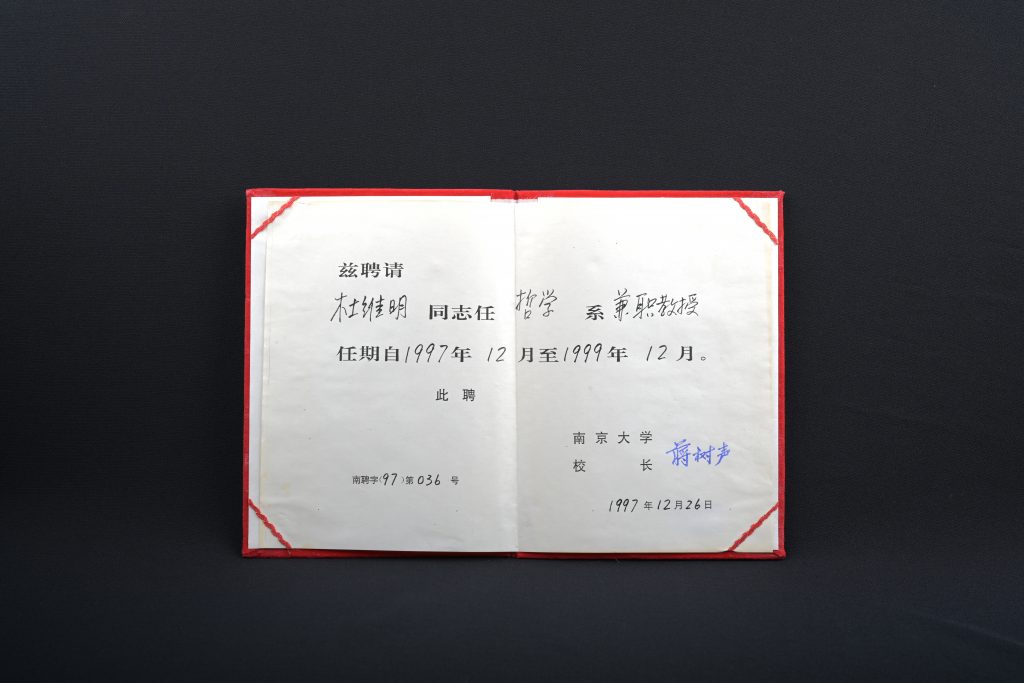 兹聘请
杜维明 同志任 哲学 系 兼职教授
任期自1997年 12月至1999年 12月。
此聘
南京大学
校长 蒋树声
南聘字(97)第036号
1997年12月26日